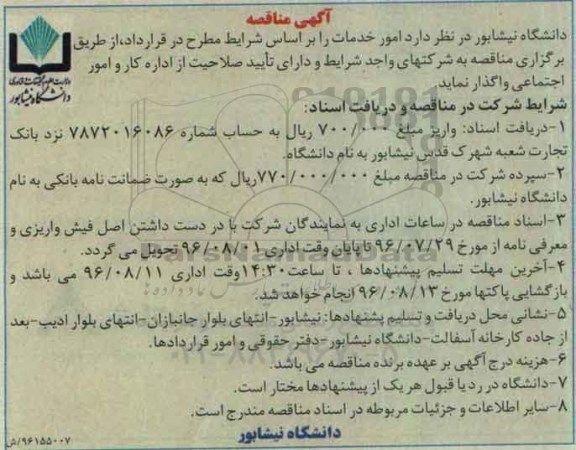 آگهی مناقصه
دانشگاه نیشابور در نظر دارد امور خدمات را بر اساس شرایط مطرح در قرارداد،از طریق
برگزاری مناقصه به شرکتهای واجد شرایط و دارای تأیید صلاحیت از اداره کار و امور
اجتماعی واگذار نماید.
دانشگاه نیشابور
شرایط شرکت در مناقصه و دریافت اسناد:
۱-دریافت اسناد: واریز مبلغ ۷۰۰/۰۰۰ ریال به حساب شماره ۷۸۷۲۰۱۶۰۸۶ نزد بانک
تجارت شعبه شهرک قدس نیشابور به نام دانشگاه.
۲-سپرده شرکت در مناقصه مبلغ ۷۷۰/۰۰۰/۰۰۰ریال که به صورت ضمانت نامه بانکی به نام
دانشگاه نیشابور.
۳-اسناد مناقصه در ساعات اداری به نمایندگان شرکت با در دست داشتن اصل فیش واریزی و
معرفی نامه از مورخ ۹۶/۰۷/۲۹ تا پایان وقت اداری ۹۶/۰۸/۰۱ تحویل می گردد.
۴-آخرین مهلت تسلیم پیشنهادها ، تا ساعت ۱۴:۳۰وقت اداری ۹۶/۰۸/۱۱ می باشد و
بازگشایی پاکتها مورخ ۹۶/۰۸/۱۳ انجام خواهد شد.
۵-نشانی محل دریافت و تسلیم پشنهادها: نیشابور-انتهای بلوار جانبازان-انتهای بلوار ادیب-بعد
از جاده کارخانه آسفالت-دانشگاه نیشابور-دفتر حقوقی و امور قراردادها.
۶-هزینه درج آگهی بر عهده برنده مناقصه می باشد.
۷-دانشگاه در رد یا قبول هر یک از پیشنهادها مختار است.
۸-سایر اطلاعات و جزئیات مربوطه در اسناد مناقصه مندرج است.
دانشگاه نیشابور
۹۶۱۵۵۰۰۷/ش
ParsNamadData